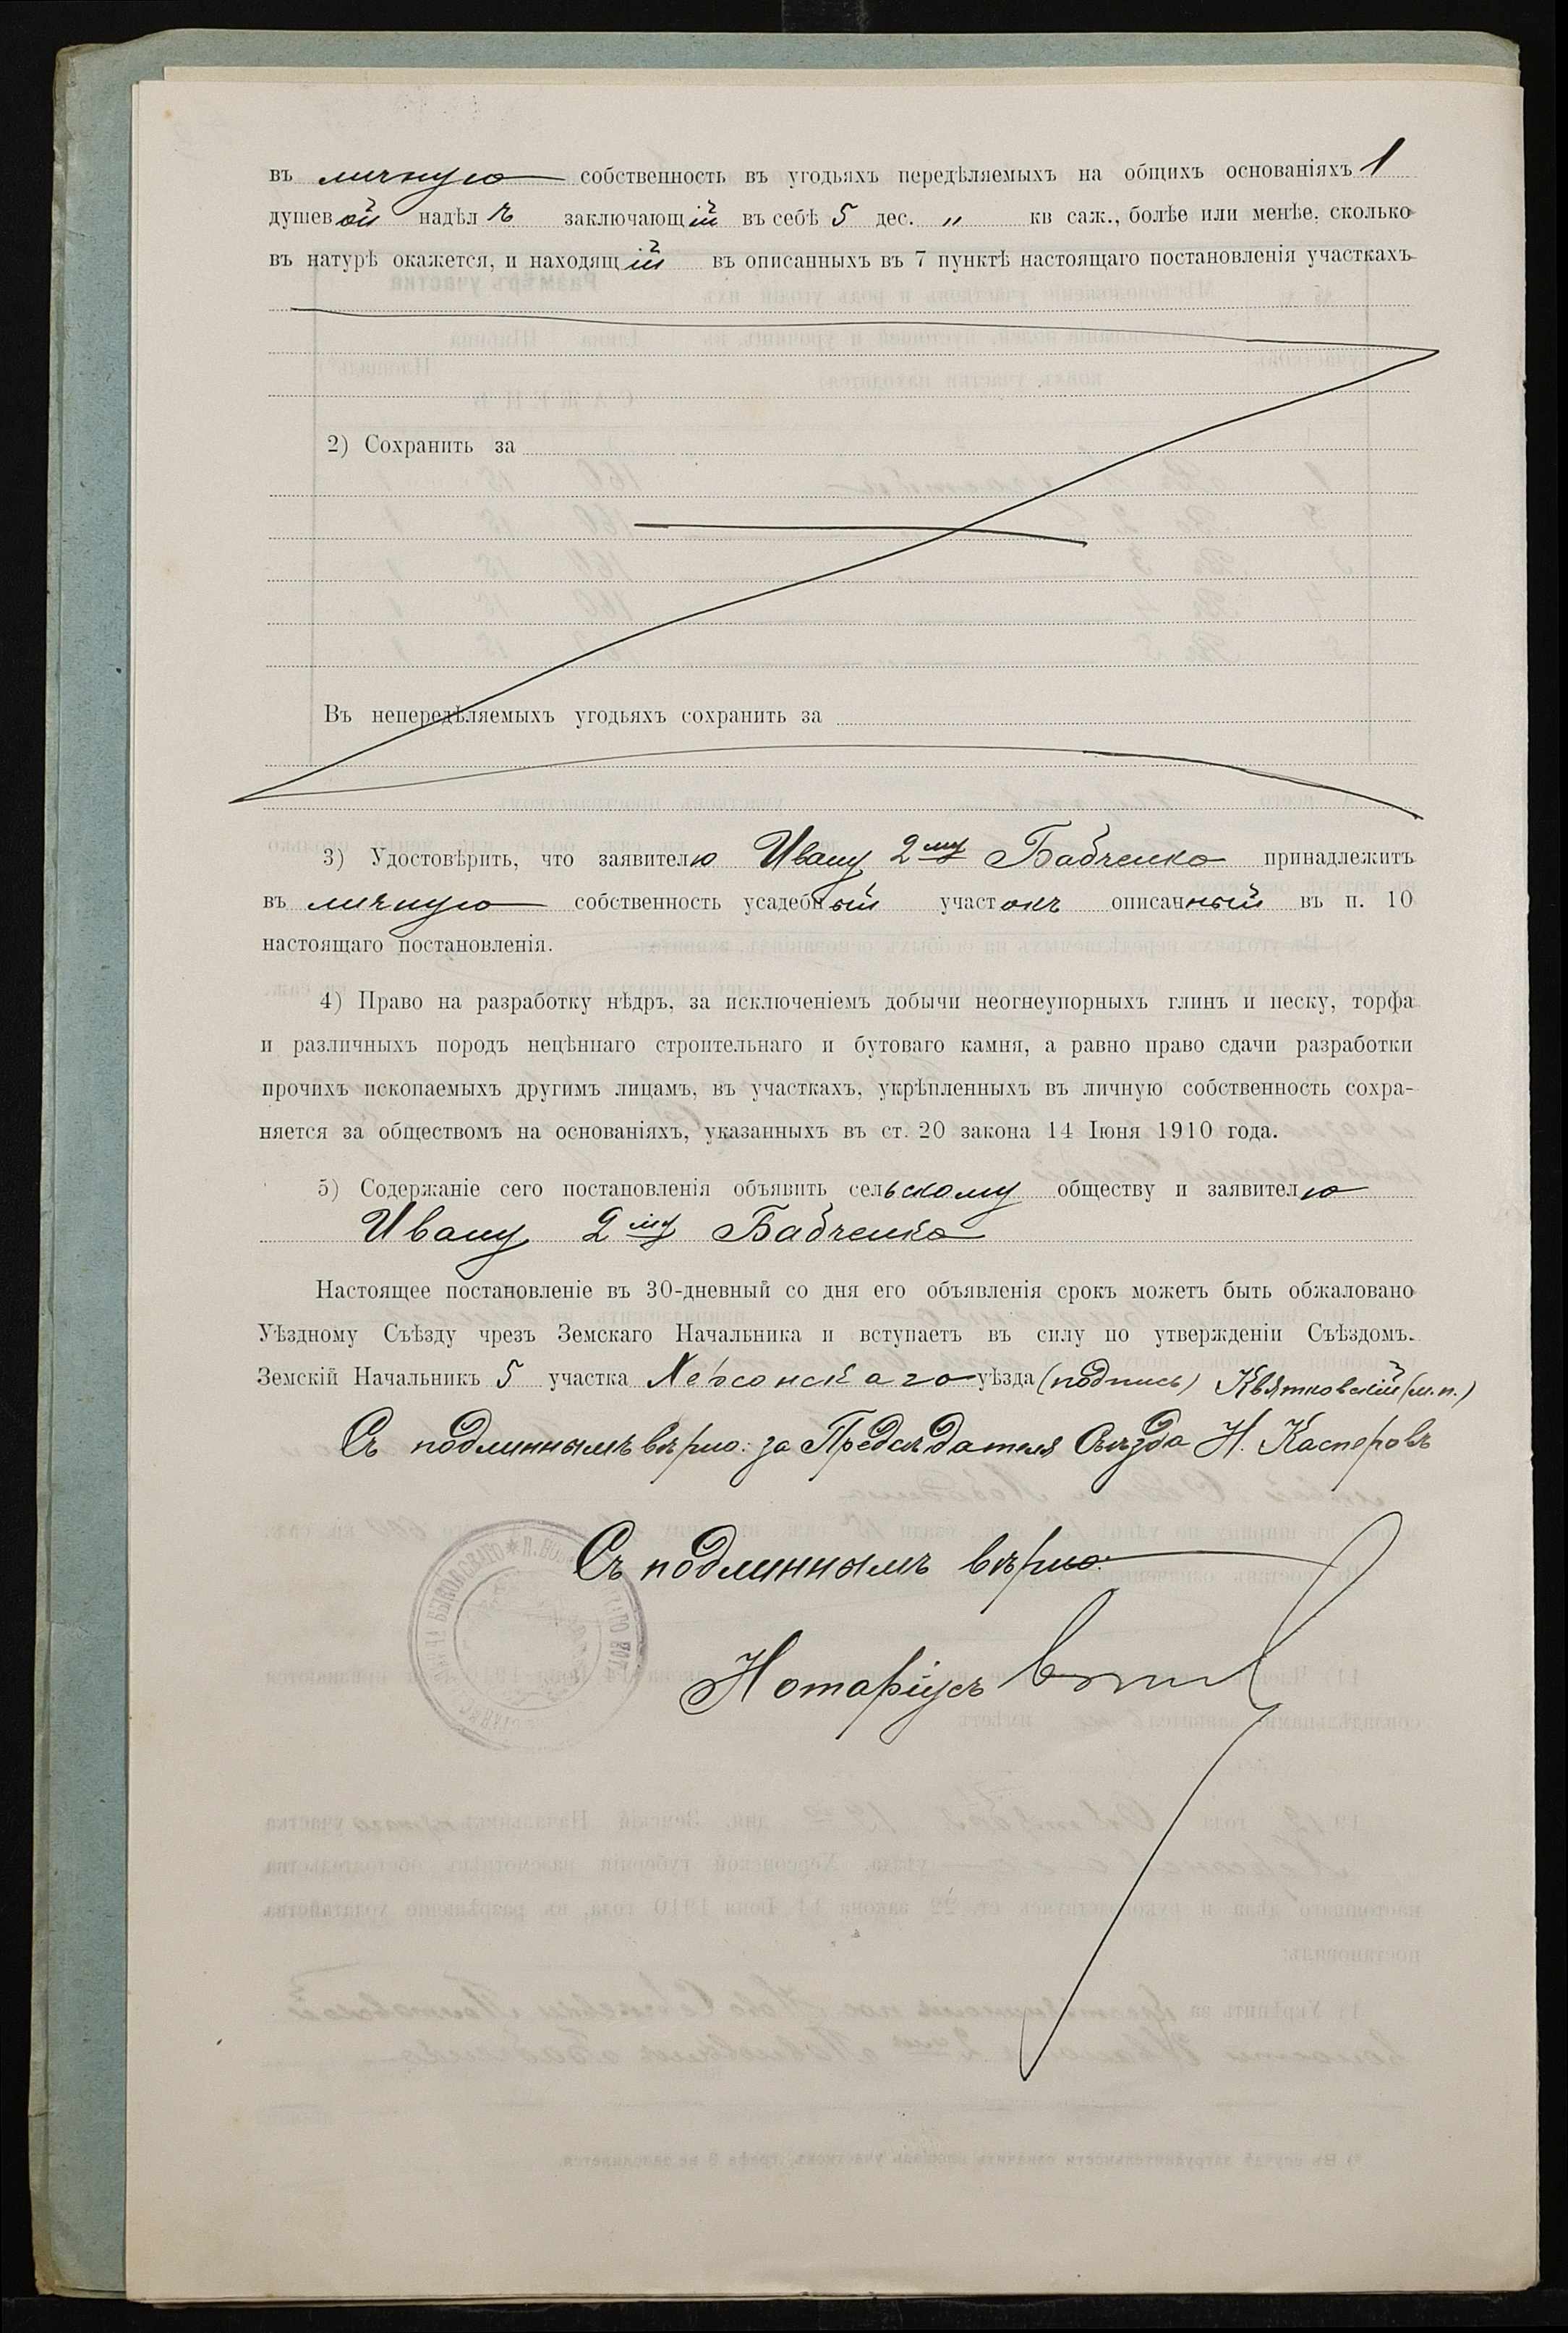 въ личную собственность въ угодьяхъ передѣляемыхъ на общихъ основаніяхъ 1
душевой надѣлъ заключающій въ себѣ 5 дес. „ кв саж., болѣе или менѣе, сколько
въ натурѣ окажется, и находящій въ описанныхъ въ 7 пунктѣ настоящаго постановленія участкахъ
2) Сохранить за
Въ непередѣляемыхъ угодьяхъ сохранить за
3) Удостовѣрить, что заявителю Ивану 2му Бабченко принадлежитъ
въ личную собственность усадебный участокъ описанный въ п. 10
настоящаго постановленія.
4) Право на разработку нѣдръ, за исключеніемъ добычи неогнеупорныхъ глинъ и песку, торфа
и различныхъ породъ нецѣннаго строительнаго и бутоваго камня, а равно право сдачи разработки
прочихъ ископаемыхъ другимъ лицамъ, въ участкахъ, укрѣпленныхъ въ личную собственность сохра-
няется за обществомъ на основаніяхъ, указанныхъ въ ст. 20 закона 14 Іюня 1910 года.
5) Содержаніе сего постановленія объявить сельскому обществу и заявителю
Ивану 2му Бабченко
Настоящее постановленіе въ 30-дневный со дня его объявленія срокъ можетъ быть обжаловано
Уѣздному Съѣзду чрезъ Земскаго Начальника и вступаетъ въ силу по утвержденіи Съѣздомъ.
Земскій Начальникъ 5 участка Херсонскаго уѣзда (подпись) Квятковскій (м.п.)
Съ подлиннымъ вѣрно: за Предсѣдателя Съѣзда Н. Касперовъ
Съ подлиннымъ вѣрно:
Нотаріусъ